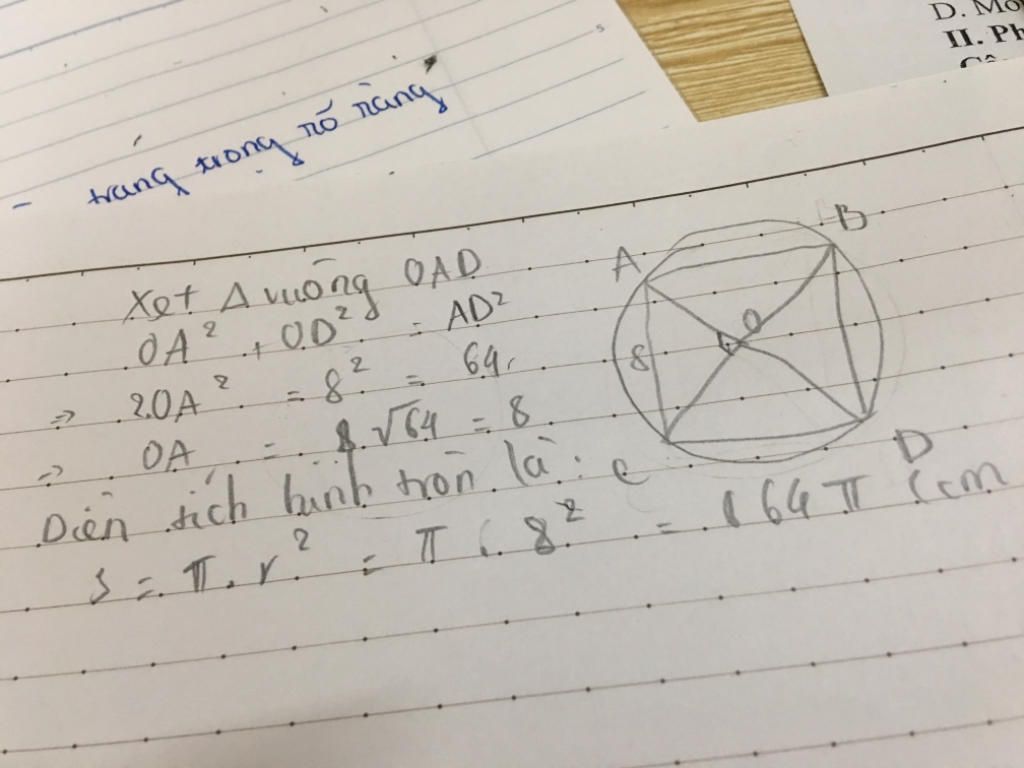 D. Mo
II. Ph
- trang trong rõ ràng
Xet Δ vuông OAD
OA² + OD² = AD²
=> 2.OA² = 8² = 64
=> OA = √64 = 8
Diện tích hình tròn là:
S = π.r² = π . 8² = 64π (cm
A
B
O
8
C
D